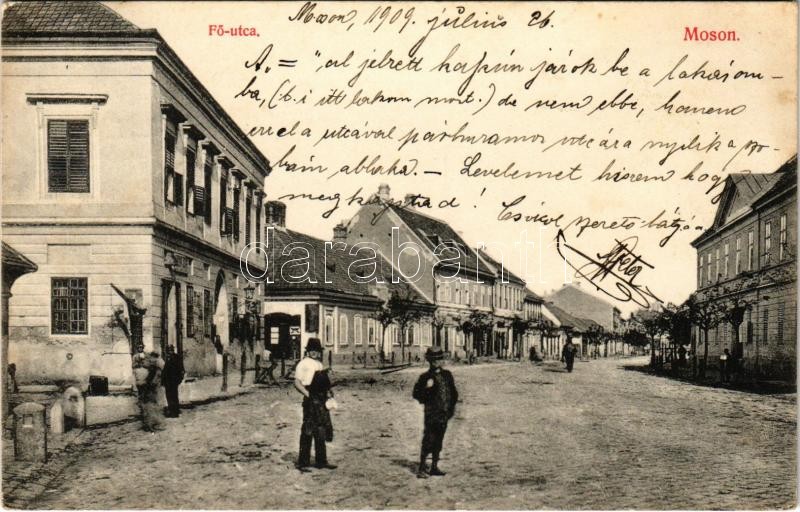 Moson, 1909. július 26.
Fő-utca.
Moson.
A. = "al jelzett kapun járok be a lakásom-
ba, (t. i itt lakom most.) de nem ebbe, hanem
erre a utcával párhuzamos utcára nyílik a szo-
bám ablaka. — Levelemet hiszem hogy
megkaptad!
Csókol szerető bátyád
darabanth.com